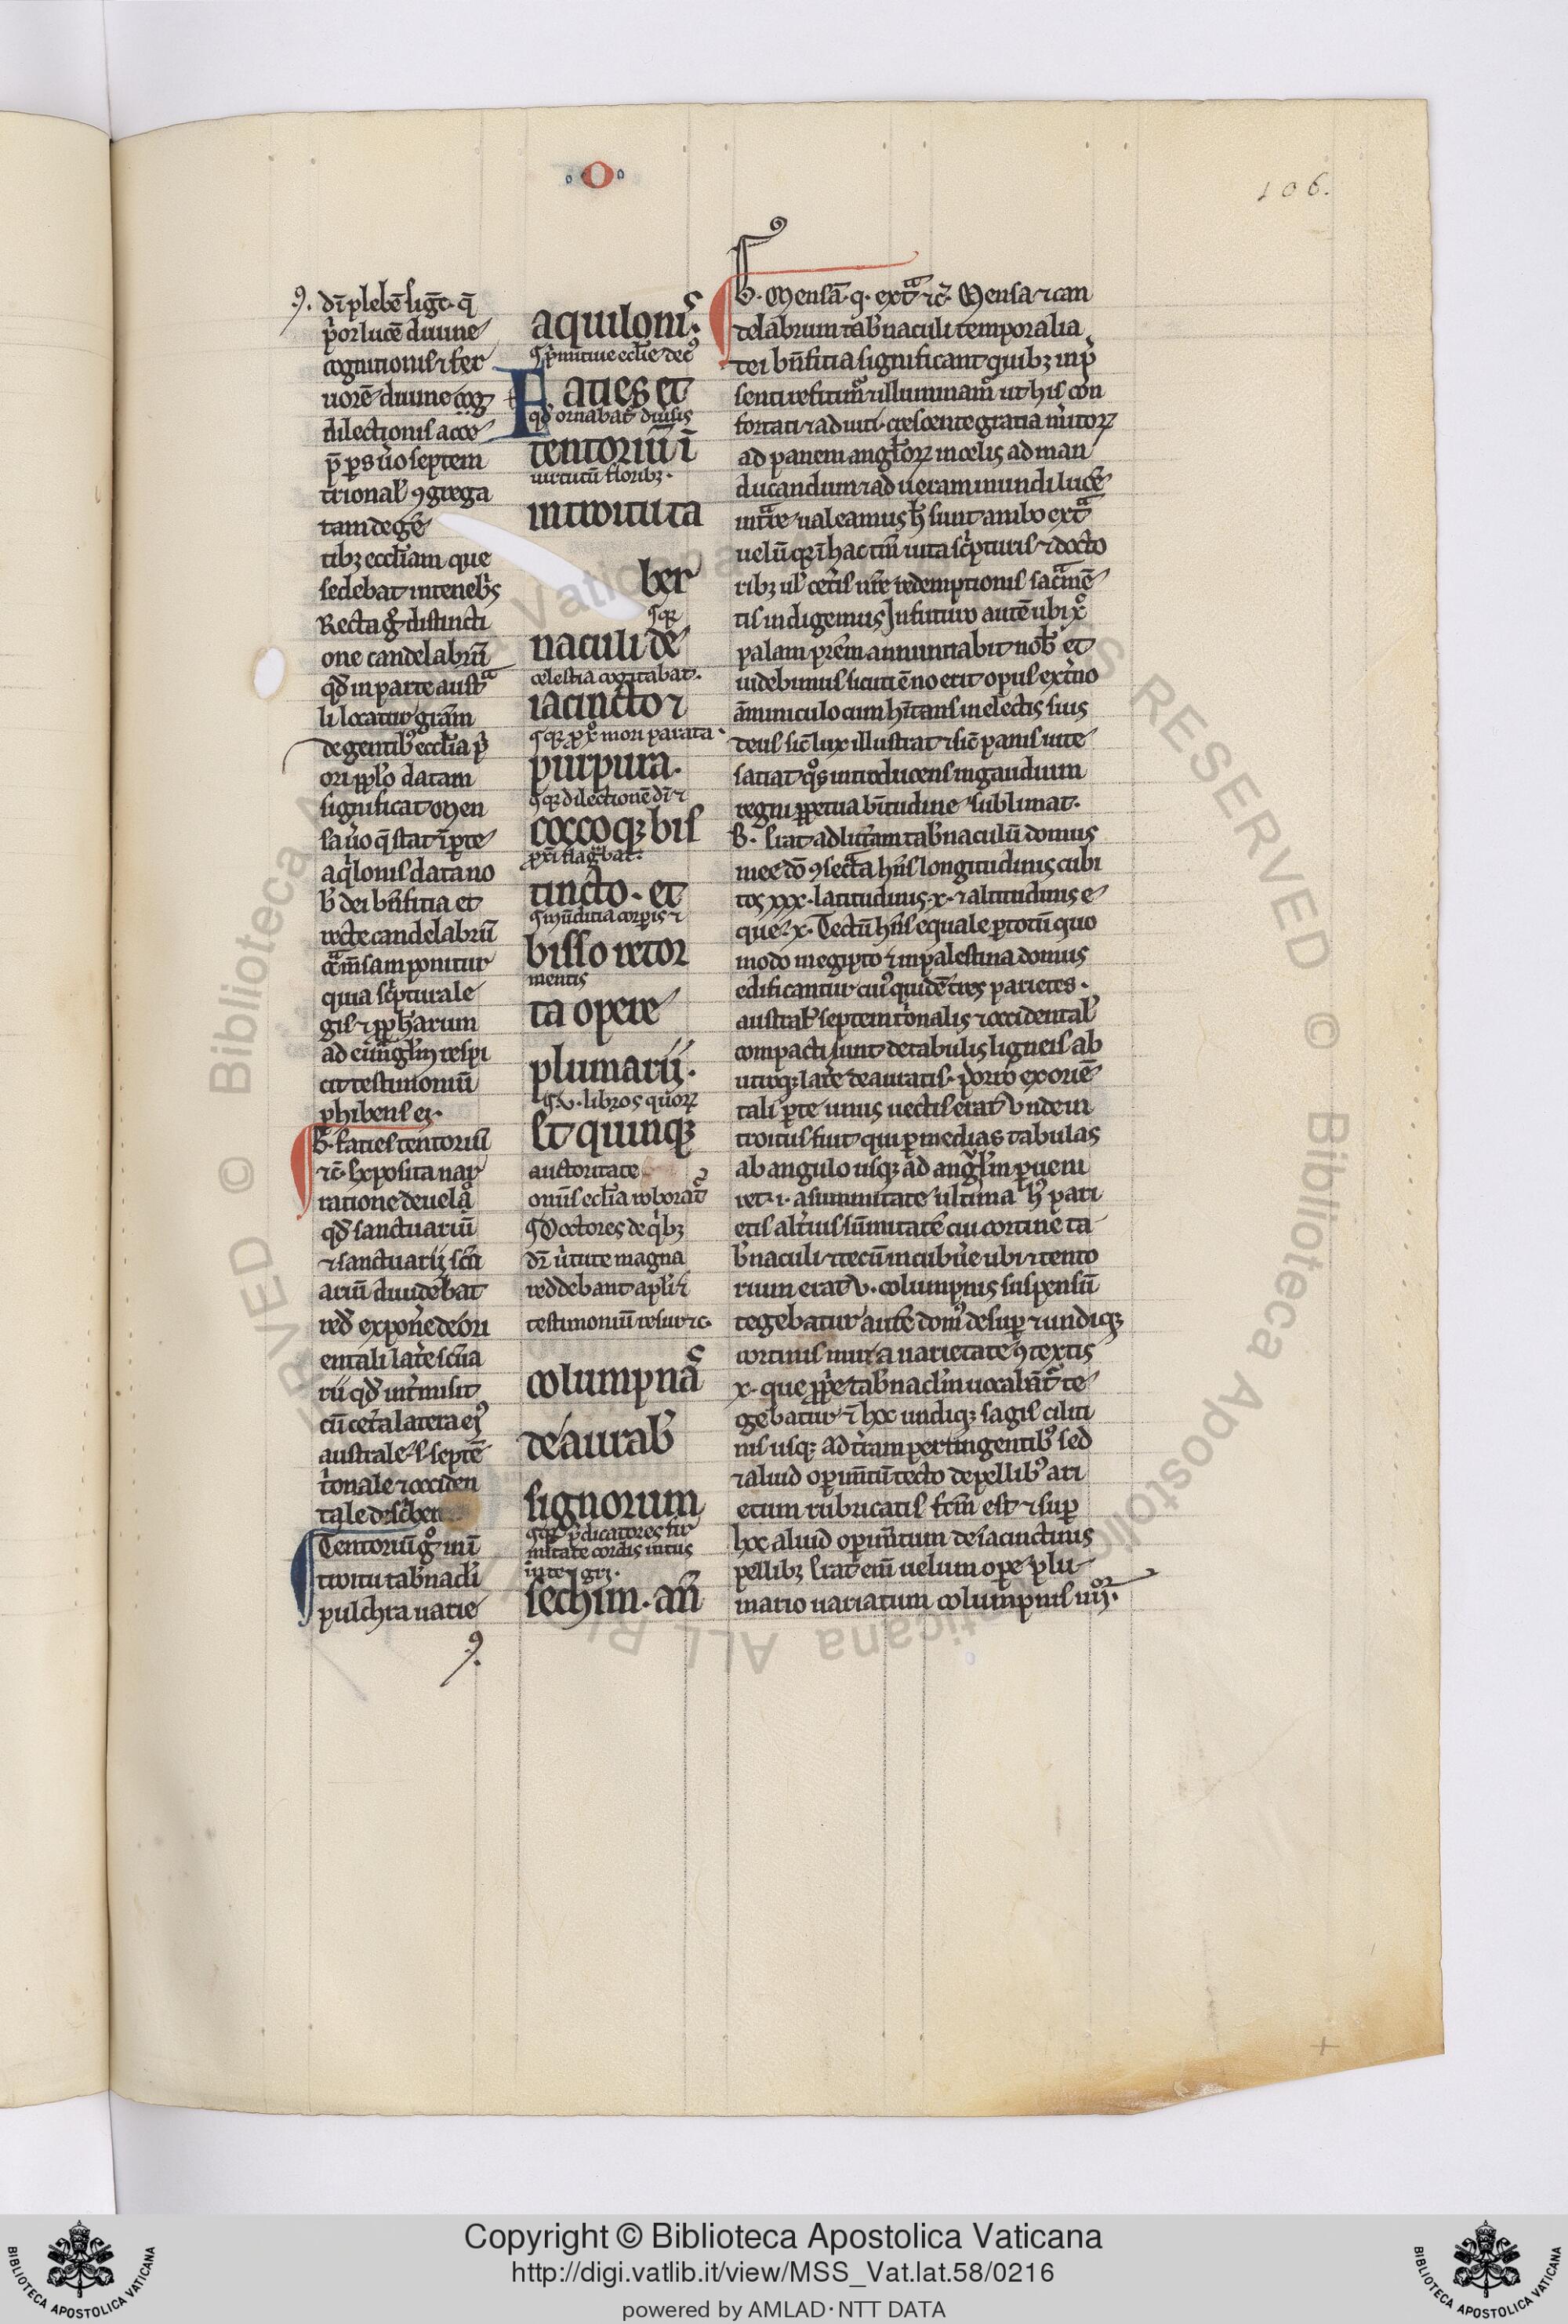 .o O o.
106.
dī plebē sigc̄. q̄
p̓or lucē diuine
cognitionis ⁊ fer
uorē diuine cog̅
dilectionis acce
p̄ ps uͦ septem
trional̓ ꝯgrega
tam de gē
tibꝫ eccl̓iam que
sedebat in tenebs̓
Recta g̊ distincti
one candelabrū
qd̓ in parte austͣ
li locatur gr̄am
de gentibꝰ eccl̓ia p̓
ori ppl̓o datam
significat Men
sa uͦo q̄ stat ī pte
aq̓lonis data no
b̓ dei bn̄fitia et
recte candelabrū
cͣ m̄sam ponitur
quia sc̓ptura le
gis ⁊ ꝓph̓arum
ad euāgl̓m respi
cit testimoniū
phibens ei.
B. Faties tentorii
⁊c̄. Exposita nar
ratione de uelo
qd̓ sanctuariū
⁊ sanctuarij scā
ariū diuidebat
red̓ expon̓e de ori
entali lat̓e scūa
rii qd̓ int̓misit
cū cet̓a latera eiꝰ
australe .s. septē
t̓onale ⁊ occiden
tale desc̓ben
Tentoriū g̊ in ī
troitu tab̓nacl̓i
pulchra uarie
9.
aquilonis.
p̓mitiue eccl̓ie decꝰ
Faties et
qd̓ ornabat̓ diuisis
tentoriū ī
uirtutū floribꝫ.
introitu ta
ber
naculi de
celestia cogitabat.
iacincto ⁊
qꝛ p xp̄o mori parata.
purpura.
qꝛ dilectionē dī ⁊
coccoqꝫ bis
pxī flag̓bat.
tincto. et
mūditia corꝑis ⁊
bisso retor
mentis
ta opere
plumarij.
.v. libros quoꝝ
Et quinqꝫ
auctoritate
omīs eccl̓ia roborat̓
Doctores de q̓bꝫ
dr̄ u̓tute magna
reddebant apl̓i
testimoniū resur ⁊c.
columpnas
deaurab̓
signorum
qꝛ p̓dicatores fir
mitate cordis intus
inte gri.
sechim. an̄
B. Mensā. q. ext̓ͣ ⁊c̄. Mensa ⁊ can
delabrum tab̓naculi temporalia
dei bn̄fitia significant quibꝫ in p̓
senti reficimͬ ⁊ illuminamͬ ut his con
fortati ⁊ adiuti. crescente gratia m̓itoꝝ
ad panem angl̓oꝝ in celis ad man
ducandum ⁊ ad ueram mundi lucē
int̓ͣre ualeamus h̓ sunt ambo ext̓ͣ
uelū qꝛ ī hac tm̄ uita sc̓pturis ⁊ docto
ribꝫ ul̓ cet̓is nr̄e redemptionis sacͣmē
tis indigemus In futuro autē ubi xp̄o
palam pr̄em annuntiabit nob̓ et
uidebimus sicuti ē no erit opus ext̓no
āminiculo cum h̓itans in electis suis
deus sic̄ lux illustrat ⁊ sic̄ panis uite
satiat q̊s introducens in gaudium
regni ꝑpetua b̄titudine sublimat.
B. Erat ad litt̓am tab̓naculū domus
mee dō ꝯsecͣta hn̄s longitudinis cubi
tos xxx. latitudinis. x. ⁊ altitudinis e
que x. Tectū hn̄s equale ꝑ totū quo
modo in egipto ⁊ in palestina domus
edificantur cuiꝰ quidē tres parietes.
austral̓ septemt̓onalis ⁊ occidental̓
compacti sunt de tabulis ligneis ab
utroqꝫ lat̓e deauratis. porro ex oriē
tali ꝑte unus uectis erat vnde in
troitus fuit qui ꝑ medias tabulas
ab angulo usqꝫ ad angl̓m ꝑueni
ret. i. a summitate ultima hꝰ pari
etis alt̓ius sūmitatē cui cortine ta
b̓naculi ⁊ tecū incubu̓e ubi ⁊ tento
rium erat v. columpnis suspensū
tegebatur autē domꝰ desuꝑ ⁊ undiqꝫ
cortinis mira uarietate ꝯtextis
x. que ꝓp̓e tab̓nacl̓m uocabāt̓ te
gebatur ⁊ hoc undiqꝫ sagis cilici
nis usqꝫ ad t̓ram pertingentibꝰ sed
⁊ aliud oꝑim̄tū tecto de pellibꝰ ari
etum rubricatis fcm̄ est ⁊ suꝑ
hoc aliud oꝑim̄tum de iacinctinis
pellibꝫ Erat em̄ uelum oꝑe plu
mario uariatum columpnis iiijͦʳ.
Copyright © Biblioteca Apostolica Vaticana
http://digi.vatlib.it/view/MSS_Vat.lat.58/0216
powered by AMLAD·NTT DATA
BIBLIOTECA APOSTOLICA VATICANA
BIBLIOTECA APOSTOLICA VATICANA